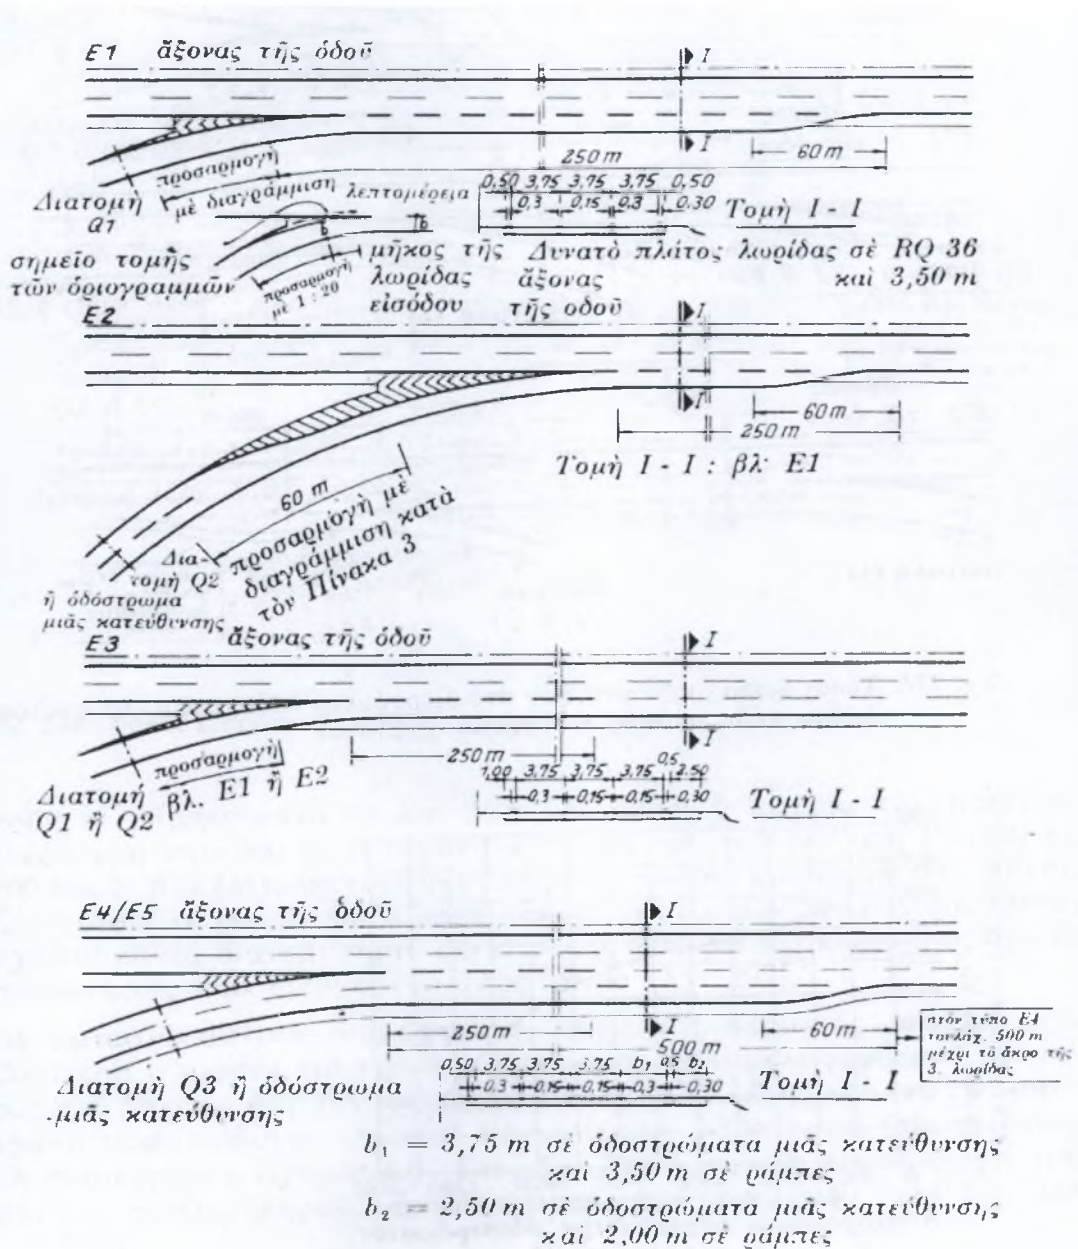 E1 ἄξονας τῆς ὁδοῦ
I
I
60 m
250 m
προσαρμογὴ
μὲ διαγράμμιση
Διατομὴ
α1
λεπτομέρεια
0,50 3,75 3,75 3,75 0,50
0,3 0,15 0,3 0,30
Τομὴ I - I
b
b
σημεῖο τομῆς
τῶν ὁριογραμμῶν
προσαρμογὴ
μὲ 1 : 20
μῆκος τῆς
λωρίδας
εἰσόδου
Δυνατὸ πλάτος λωρίδας σὲ RQ 36
καὶ 3,50 m
ἄξονας
τῆς οδοῦ
E2
I
I
60 m
250 m
Τομὴ I - I : βλ. E1
60 m
προσαρμογὴ μὲ
διαγράμμιση κατὰ
τὸν Πίνακα 3
Δια-
τομὴ Q2
ἢ ὁδόστρωμα
μιᾶς κατεύθυνσης
E3
ἄξονας τῆς ὁδοῦ
I
I
250 m
προσαρμογὴ
βλ. E1 ἢ E2
Διατομὴ
Q1 ἢ Q2
0,5
1,00 3,75 3,75 3,75 2,50
0,3 0,15 0,15 0,30
Τομὴ I - I
E4/E5 ἄξονας τῆς ὁδοῦ
I
I
250 m
60 m
500 m
στὸν τύπο E4
τουλάχ. 500 m
μέχρι τὸ ἄκρο τῆς
3. λωρίδας
0,50 3,75 3,75 3,75 b₁ 0,5 b₂
0,3 0,15 0,15 0,3 0,30
Τομὴ I - I
Διατομὴ Q3 ἢ ὁδόστρωμα
μιᾶς κατεύθυνσης
b₁ = 3,75 m σὲ ὁδοστρώματα μιᾶς κατεύθυνσης
καὶ 3,50 m σὲ ράμπες
b₂ = 2,50 m σὲ ὁδοστρώματα μιᾶς κατεύθυνσης
καὶ 2,00 m σὲ ράμπες